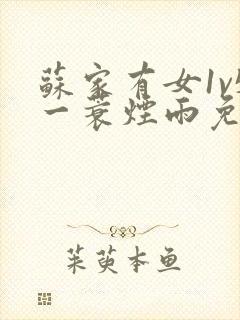 蘇家有女1v
一蓑煙雨免
茱萸本鱼